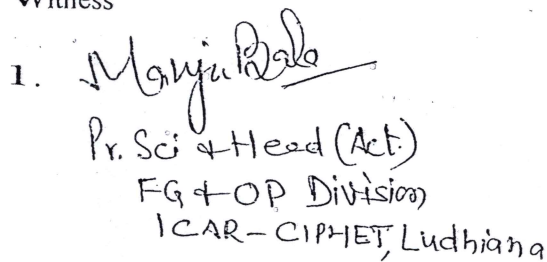 Witness
1. Manju Bala
Pr. Sci & Head (Act.)
FG & OP Division
ICAR - CIPHET, Ludhiana